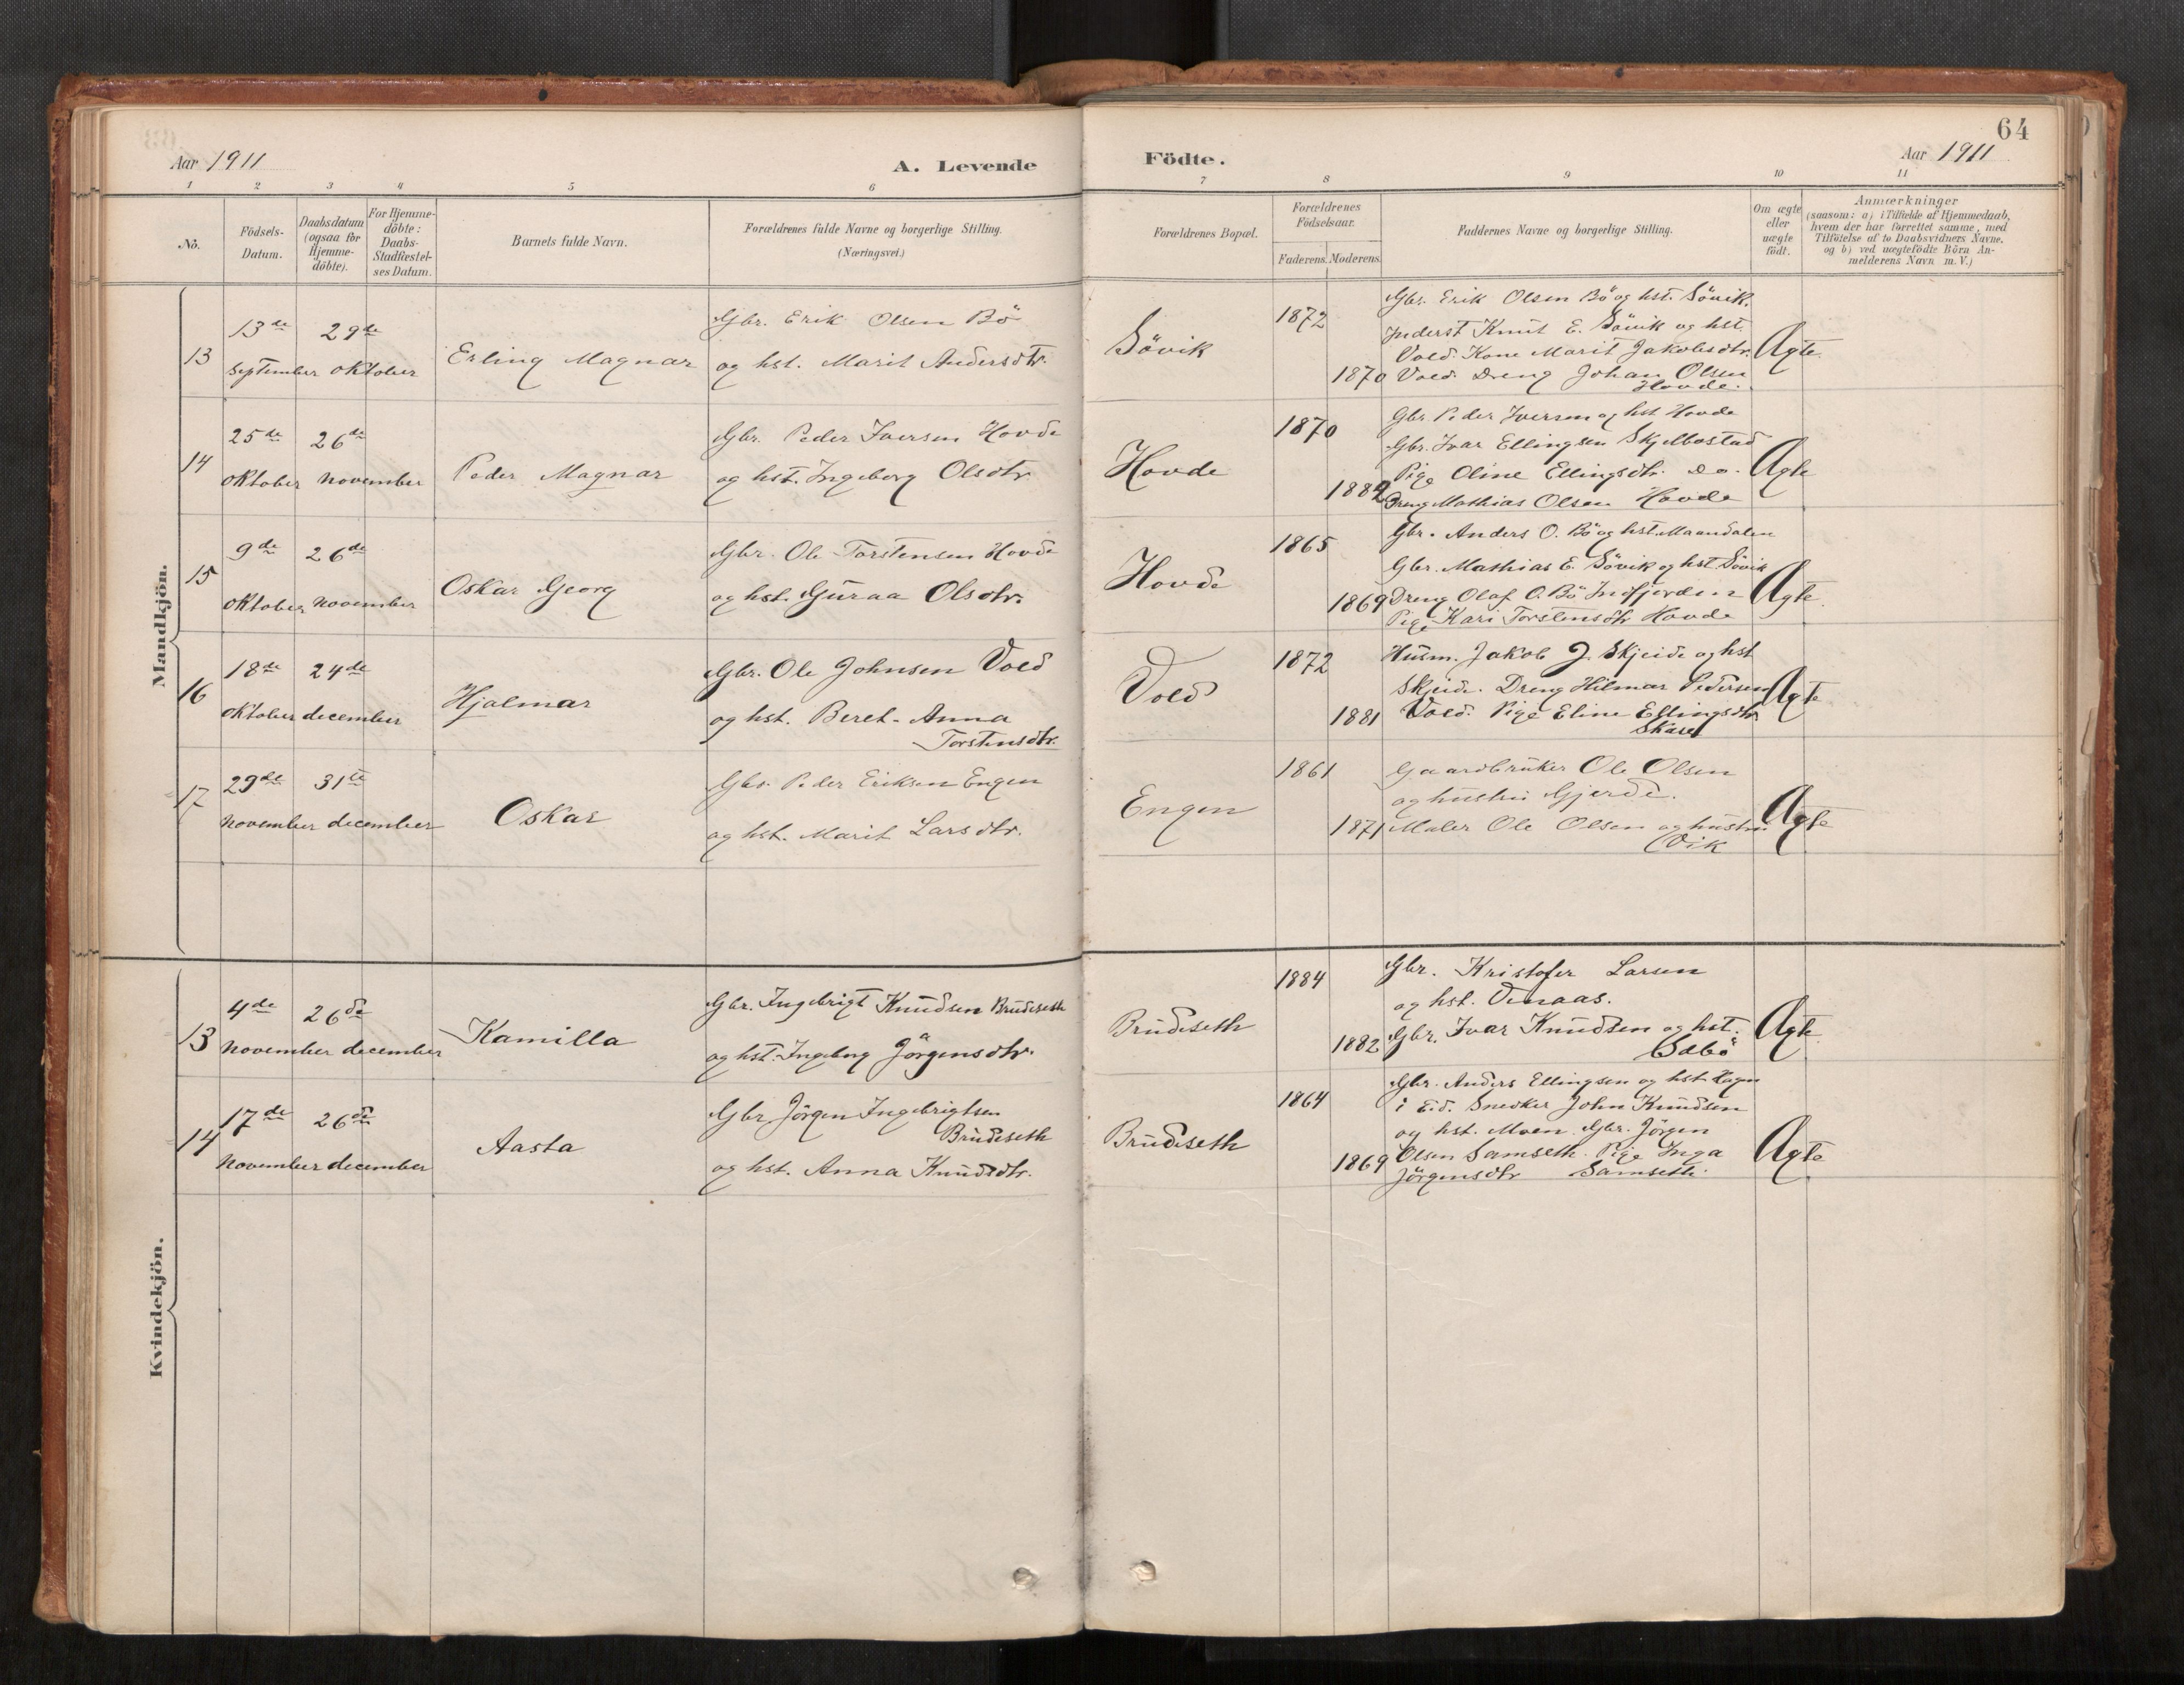 64
Aar 1911
A. Levende
Födte.
Aar 1911
1 2 3 4 5 6 7 8 9 10 11
No.
Födsels-
Datum.
Daabsdatum
(ogsaa for
Hjemme-
döbte).
For Hjemme-
döbte:
Daabs-
Stadfæstel-
ses Datum.
Barnets fulde Navn.
Forældrenes fulde Navne og borgerlige Stilling.
(Næringsvei.)
Forældrenes Bopæl.
Forældrenes
Födselsaar.
Faderens. Moderens.
Faddernes Navne og borgerlige Stilling.
Om ægte
eller
uægte
födt.
Anmærkninger
(saasom: a) i Tilfælde af Hjemmedaab,
hvem der har forrettet samme, med
Tilföielse af to Daabsvidners Navne.
og b) ved uægtefödte Börn An-
melderens Navn m. V.)
Mandkjön.
13
13de
september
29de
oktober
Erling Magnar
Gbr. Erik Olsen Bö
og hst. Marit Andersdtr.
Sövik
1872
1870
Gbr. Erik Olsen Bö og hst. Sövik.
Inderst Knut E. Sövik og hst.
Vold. Kone Marit Jakobsdtr.
Vold. Dreng Johan Olsen
Hovde.
Ægte
14
25de
oktober
26de
november
Peder Magnar
Gbr. Peder Iversen Hovde
og hst. Ingeborg Olsdtr.
Hovde
1870
1882
Gbr. Peder Iversen og hst Hovde
Gbr. Ivar Ellingsen Skjelbostad
Pige Oline Ellingsdtr. do.
Dreng Mathias Olsen Hovde
Ægte
15
9de
oktober
26de
november
Oskar Georg
Gbr. Ole Torstensen Hovde
og hst. Guraa Olsdtr.
Hovde
1865
1869
Gbr. Anders O. Bö og hst. Maandalen
Gbr. Mathias E. Sövik og hst. Sövik
Dreng Olaf O. Bö Innfjorden
Pige Kari Torstensdtr Hovde
Ægte
16
18de
oktober
24de
december
Hjalmar
Gbr. Ole Johnsen Vold
og hst. Beret-Anna
Torstensdtr.
Vold
1872
1881
Husm. Jakob J. Skjeide og hst
Skjeide. Dreng Hilmar Pedersen
Vold. Pige Eline Ellingsdtr
Ægte
17
29de
november
31te
december
Oskar
Gbr. Peder Eriksen Engen
og hst. Marit Larsdtr.
Engen
1861
1871
Gaardbruker Ole Olsen
og hustru Gjerde.
Maler Ole Olsen og hustru
Vik
Ægte
Kvindekjön.
13
4de
november
26de
december
Kamilla
Gbr. Ingebrigt Knudsen Brudeseth
og hst. Ingeborg Jörgensdtr.
Brudeseth
1884
1882
Gbr. Kristofer Larsen
og hst. Venaas.
Gbr. Ivar Knudsen og hst.
Ægte
14
17de
november
26de
december
Aasta
Gbr Jörgen Ingebrigtsen
Brudeseth
og hst. Anna Knudsdtr.
Brudeseth
1864
1869
Gbr. Anders Ellingsen og hst. Hagen
i Eid. Snedker John Knudsen
og hst. Moen. Gbr. Jörgen
Olsen Samseth. Pige Inga
Jörgensdtr Samseth.
Ægte